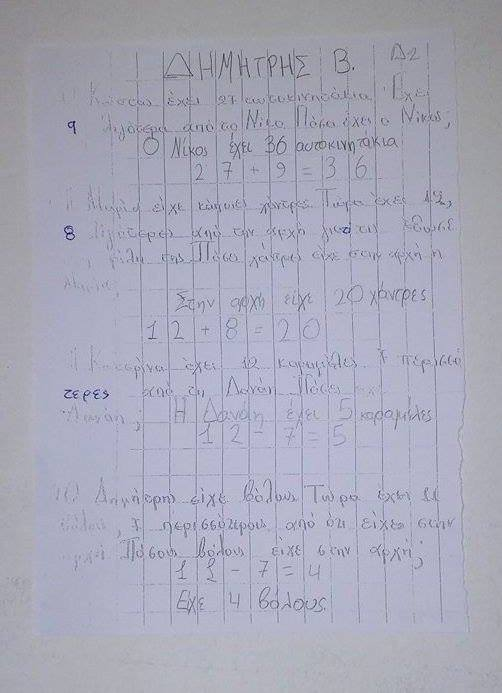 ΔΗΜΗΤΡΗΣ Β. Δ2
Κώστας έχει 27 αυτοκινητάκια Έχει
9 λιγότερα από το Νίκο Πόσα έχει ο Νίκος;
Ο Νίκος έχει 36 αυτοκινητάκια
27+9=36
Η Μαρία είχε κάποιες χάντρες Τώρα έχει 12,
8 λιγότερες από την αρχή γιατί έδωσε
φίλη της Πόσες χάντρες είχε στην αρχή η
Μαρία
Στην αρχή είχε 20 χάντρες
12+8=20
Η Κατερίνα έχει 12 καραμέλες 7 περισσό
τερες από τη Δανάη Πόσες έχει
Δανάη; Η Δανάη έχει 5 καραμέλες
12-7=5
Ο Δημήτρης είχε βόλους Τώρα έχει 11
βόλους, 7 περισσότερους από ότι είχε στην
αρχή Πόσους βόλους είχε στην αρχή;
11-7=4
Είχε 4 βόλους